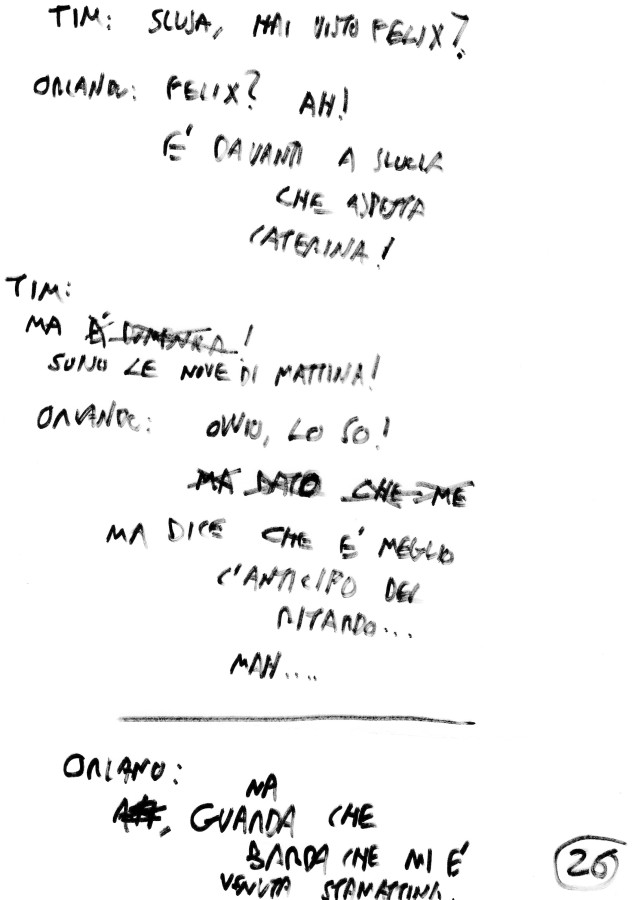 TIM: SCUSA, HAI VISTO FELIX?
ORLANDO: FELIX? AH!
E' DAVANTI A SCUOLA
CHE ASPETTA
CATERINA!
TIM:
MA È DOMENICA!
SONO LE NOVE DI MATTINA!
ORLANDO: OVVIO, LO SO!
MA DATO CHE ME
MA DICE CHE E' MEGLIO
L'ANTICIPO DEL
RITARDO...
MAH....
ORLANO:
MA
, GUARDA CHE
BARBA CHE MI E'
VENUTA STAMATTINA.
26